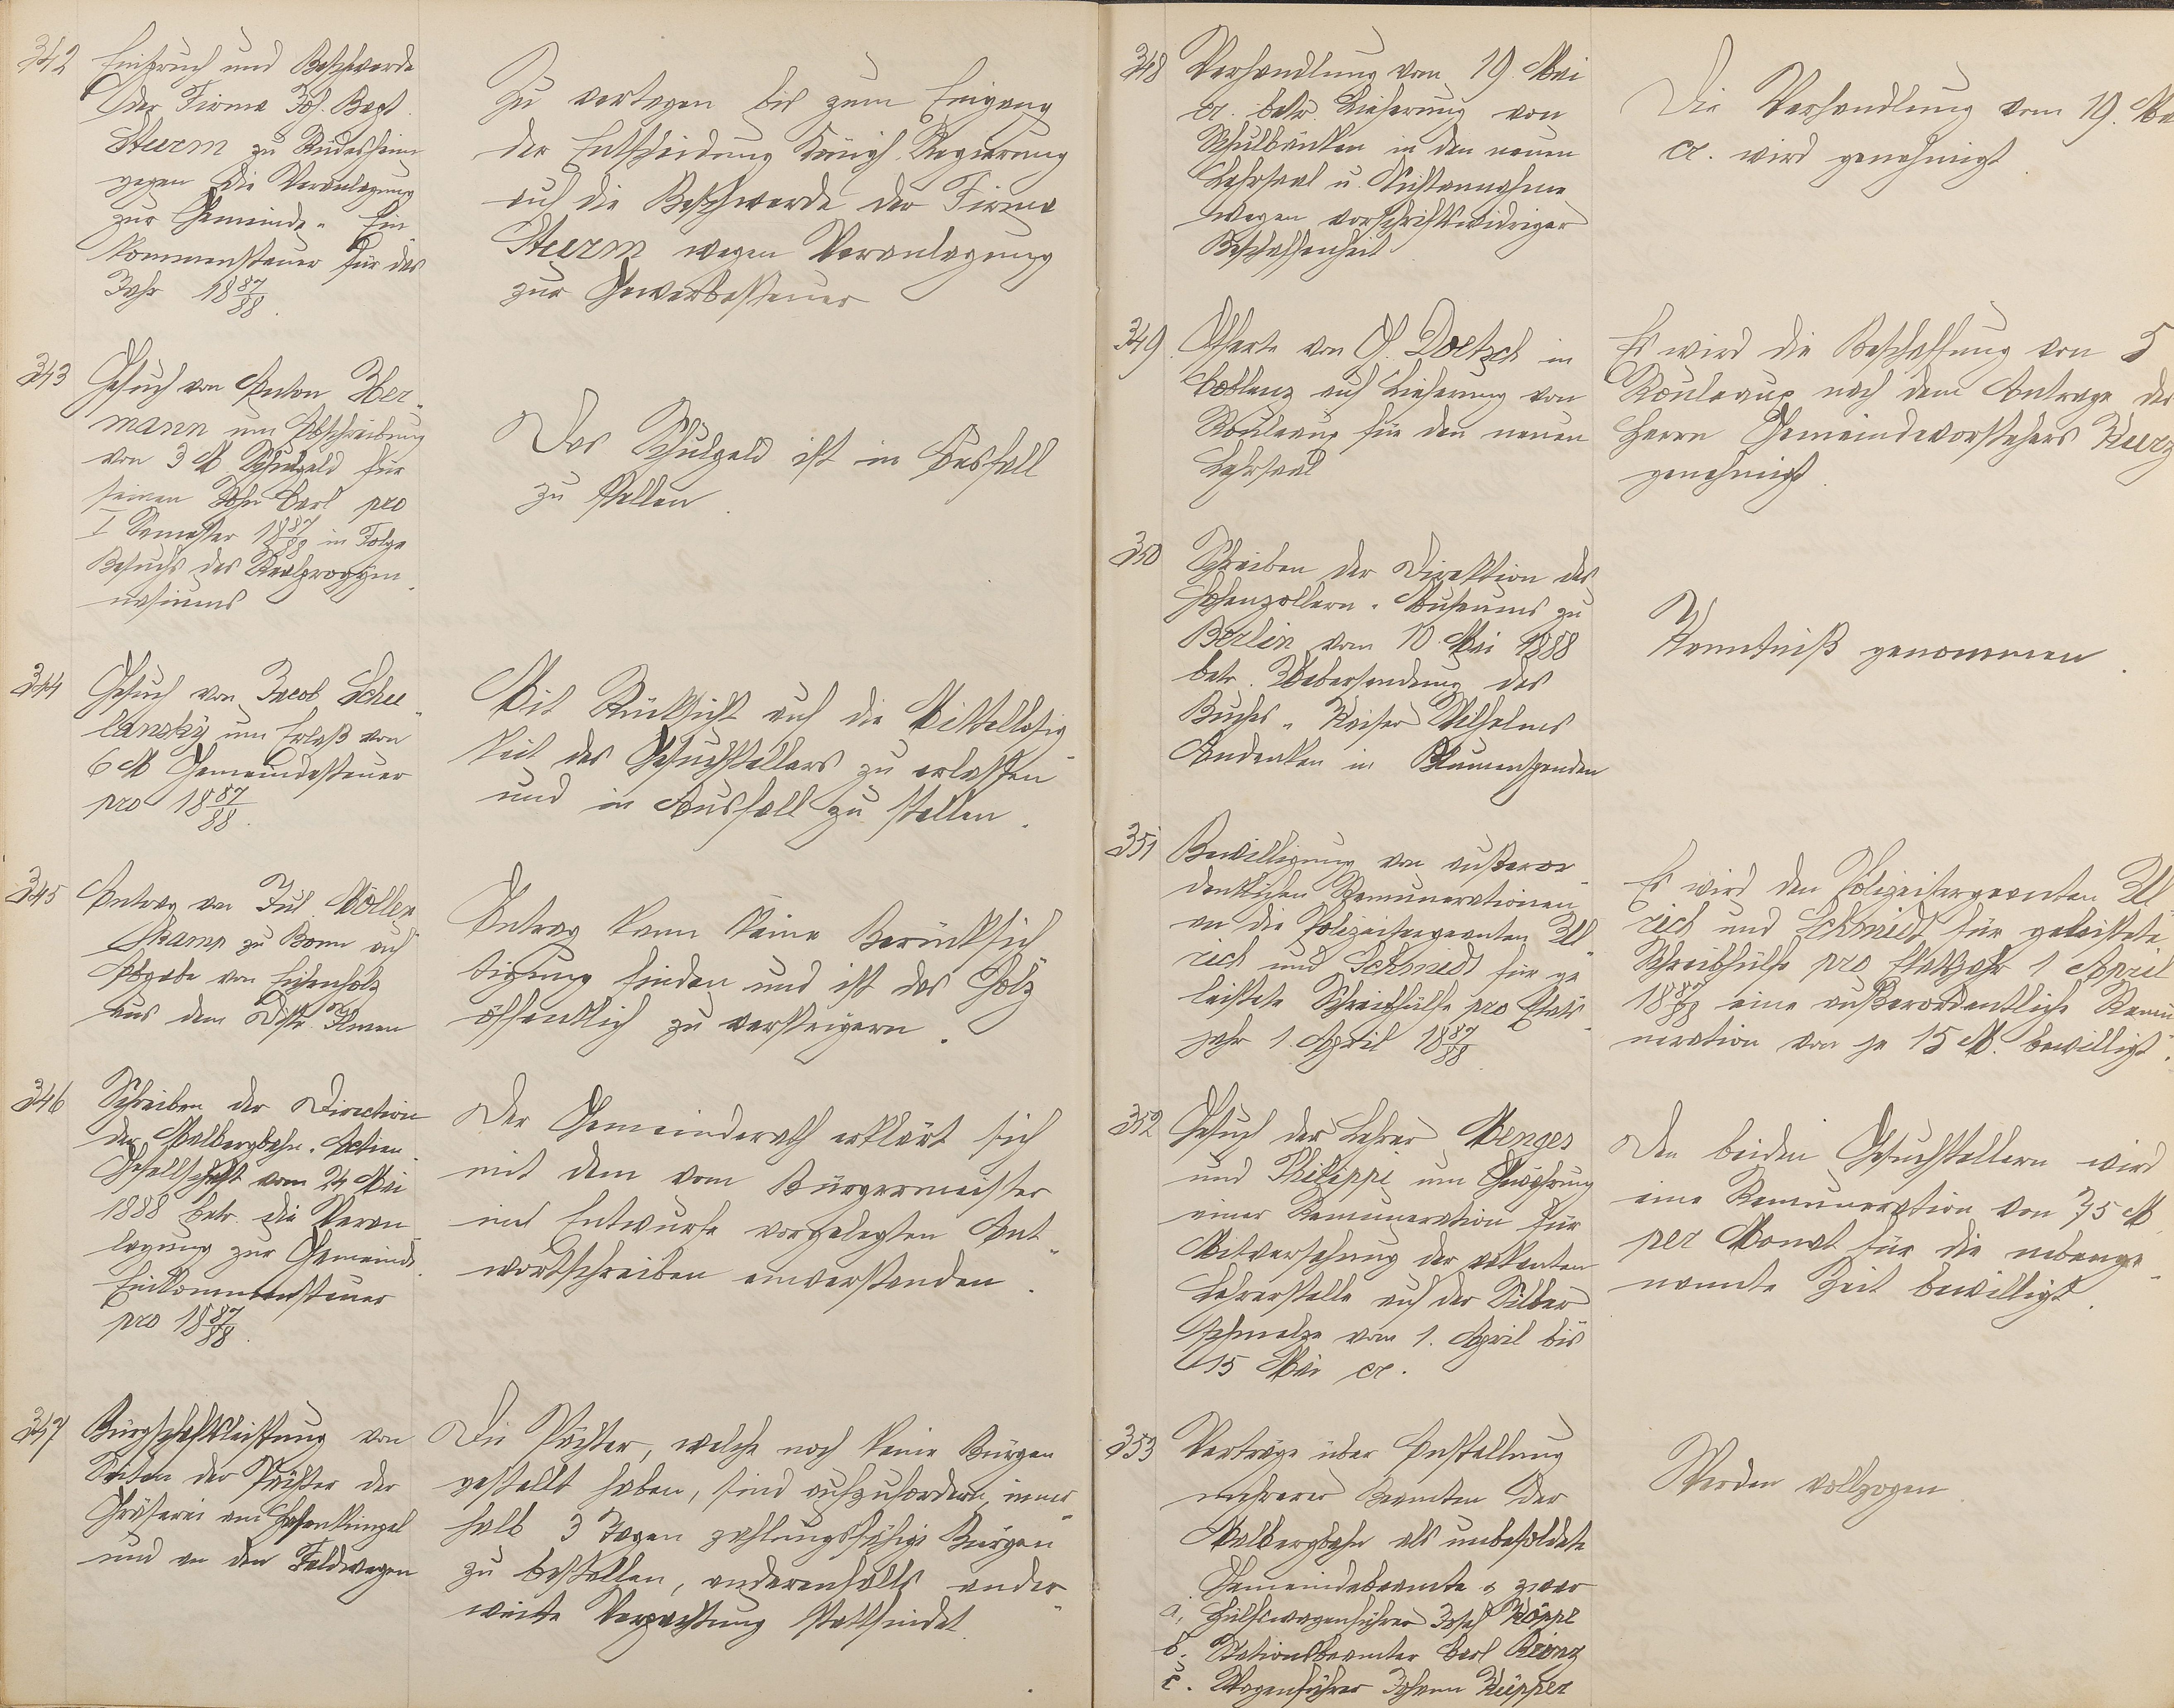 342
Einspruch und Beschwerde
der Firma Joh. Bapt.
Sturm zu Rüdesheim
gegen die Veranlagung
zur Gemeinde-Ein-
kommensteuer für das
Jahr 1887/88.
Zu vertagen bis zum Eingang
der Entscheidung Königl. Regierung
auf die Beschwerde der Firma
Sturm wegen Veranlagung
zur Gewerbesteuer
343
Gesuch von Anton Her-
mann um Abschreibung
von 3 M Schulgeld für
seinen Sohn Carl pro
I Semester 1887/88 in Folge
Besuchs des Realprogym-
nasiums
Das Schulgeld ist in Ausfall
zu stellen.
344
Gesuch von Jacob Schu-
lansky um Erlaß von
6 M Gemeindesteuer
pro 1887/88.
Mit Rücksicht auf die Mittellosig-
keit des Gesuchstellers zu erlassen
und in Ausfall zu stellen.
345
Antrag von Jul. Möllen-
kamp zu Bonn auf
Abgabe von Eichenholz
aus dem Distr.
Antrag kann keine Berücksich-
tigung finden und ist das Holz
öffentlich zu versteigern.
346
Schreiben der Direction
der Malbergbahn-Actien-
Gesellschaft vom 24 Mai
1888 betr. die Veran-
lagung zur Gemeinde-
Einkommensteuer
pro 1887/88.
Der Gemeinderath erklärt sich
mit dem vom Bürgermeister
im Entwurfe vorgelegten Ant-
wortschreiben einverstanden.
347
Bürgschaftsleistung von
Seiten der Pächter der
Gräserei am
und an den Feldwegen
Die Pächter, welche noch keine Bürgen
gestellt haben, sind aufzufordern, inner-
halb 3 Tagen zahlungsfähige Bürgen
zu bestellen, anderenfalls ander-
weite Verpachtung stattfindet.
348
Verhandlung vom 19. Mai
cr. betr. Lieferung von
Schulbänken in den neuen
Lehrsaal u. Nichtannahme
wegen vorschriftswidriger
Beschaffenheit
Die Verhandlung vom 19. Ma
cr. wird genehmigt.
349.
Offerte von G. Doetsch in
Coblenz auf Lieferung von
Rouleaux für den neuen
Lehrsaal
Es wird die Beschaffung von 5
Rouleaux nach dem Antrage des
Herrn Gemeindevorstehers Kurz
genehmigt.
350
Schreiben der Direktion des
Hohenzollern-Museums zu
Berlin vom 10. Mai 1888
betr. Uebersendung des
Buches "Kaiser Wilhelms
Andenken in Blumenspenden
Kenntniß genommen.
351
Bewilligung von außeror-
dentlichen Remunerationen
an die Polizeisergeanten Ul-
rich und Schmidt für ge-
leistete Schreibhülfe pro Etats-
jahr 1. April 1887/88
Es wird den Polizeisergeanten Ul-
rich und Schmidt für geleistete
Schreibhülfe pro Etatsjahr 1 April
1887/88 eine außerordentliche Remu-
neration von je 15 M. bewilligt.
352
Gesuch der Lehrer Menges
und Philippi um Gewährung
einer Remuneration für
Mitversehung der vakanten
Lehrerstelle auf der Silber-
schmelze vom 1. April bis
15 Mai cr.
Den beiden Gesuchstellern wird
eine Remuneration von 75 M
per Monat für die nebenge-
nannte Zeit bewilligt.
353
Verträge über Anstellung
mehrerer Beamten der
Malbergbahn als unbesoldete
Gemeindebeamte u zwar
a. Hülfswagenführer Josef Köppe
b. Stationsbeamter Carl
c. Wagenführer Johann Küpper
Werden vollzogen.